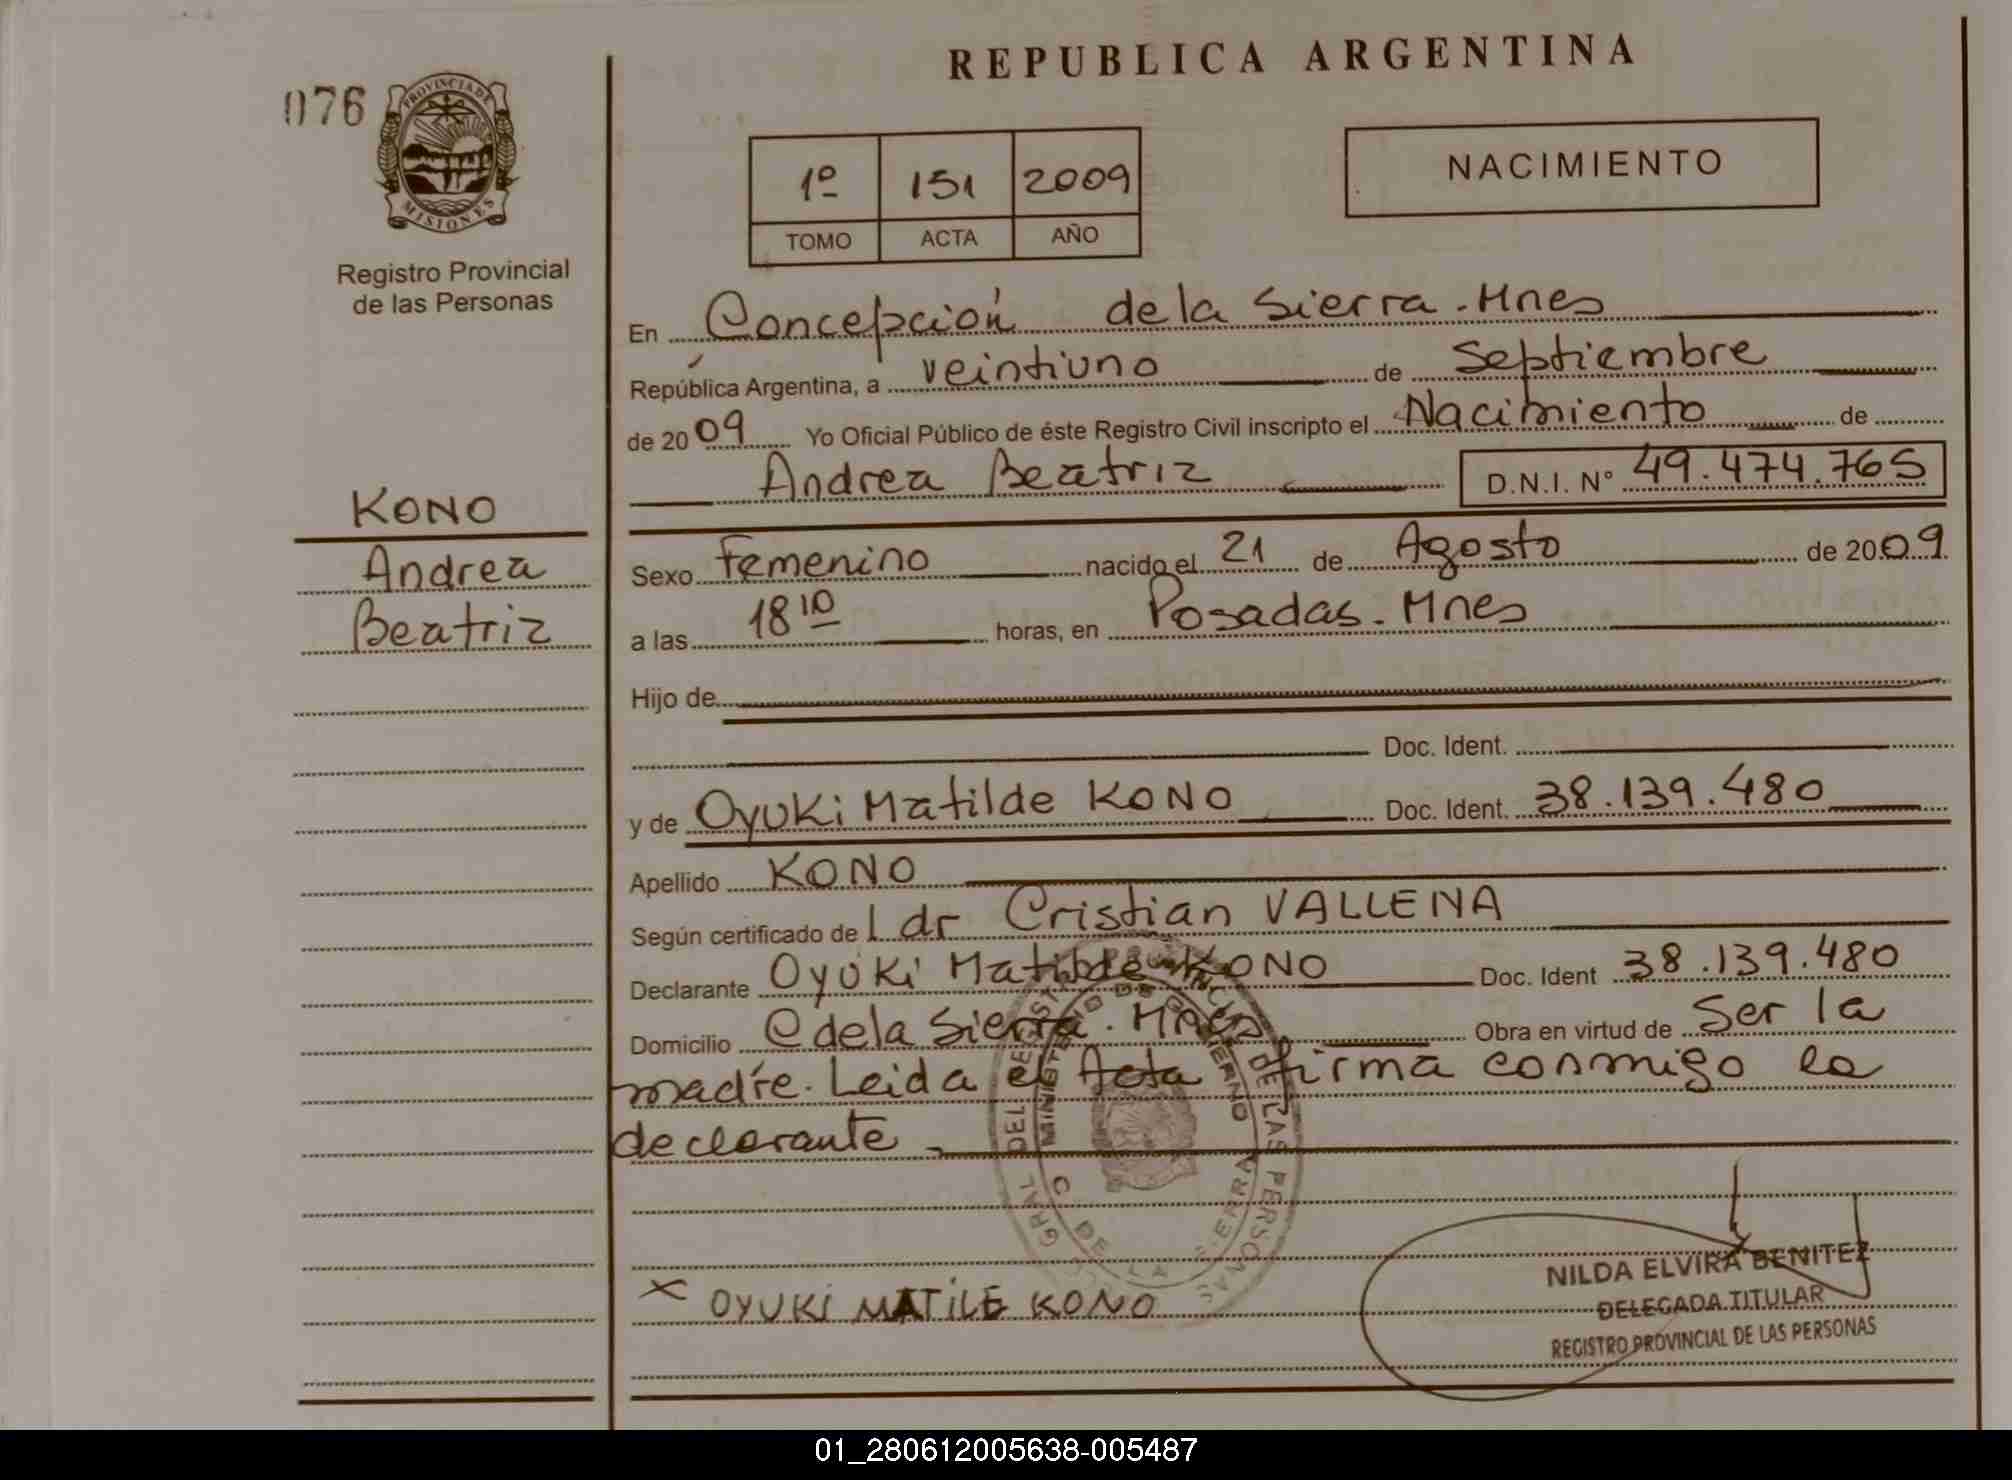 REPUBLICA ARGENTINA
076
PROVINCIA DE
MISIONES
Registro Provincial
de las Personas
1º 151 2009
TOMO ACTA AÑO
NACIMIENTO
En Concepción de la Sierra. Mnes
República Argentina, a veintiuno de Septiembre
de 2009 Yo Oficial Público de éste Registro Civil inscripto el Nacimiento de
Andrea Beatriz D.N.I. Nº 49.474.765
KONO
Andrea
Beatriz
Sexo Femenino nacido el 21 de Agosto de 2009
a las 18 10 horas, en Posadas. Mnes
Hijo de
Doc. Ident.
y de Oyuki Matilde KONO Doc. Ident. 38.139.480
Apellido KONO
Según certificado de l dr Cristian VALLENA
Declarante Oyuki Matilde KONO Doc. Ident 38.139.480
Domicilio C de la Sierra. Mnes Obra en virtud de Ser la
madre. Leida el Acta firma conmigo la
declarante.
MINISTERIO DE GOBIERNO
DE LAS PERSONAS
X OYUKI MATILE KONO
NILDA ELVIRA BENITEZ
DELEGADA TITULAR
REGISTRO PROVINCIAL DE LAS PERSONAS
01_280612005638-005487